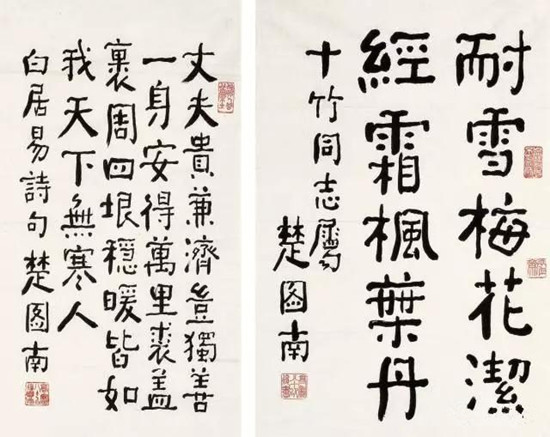 耐雪梅花潔
經霜楓葉丹
十竹同志屬
楚图南
丈夫貴兼濟豈獨善
一身安得萬里裘盖
裹周四垠穩暖皆如
我天下無寒人
白居易詩句 楚图南